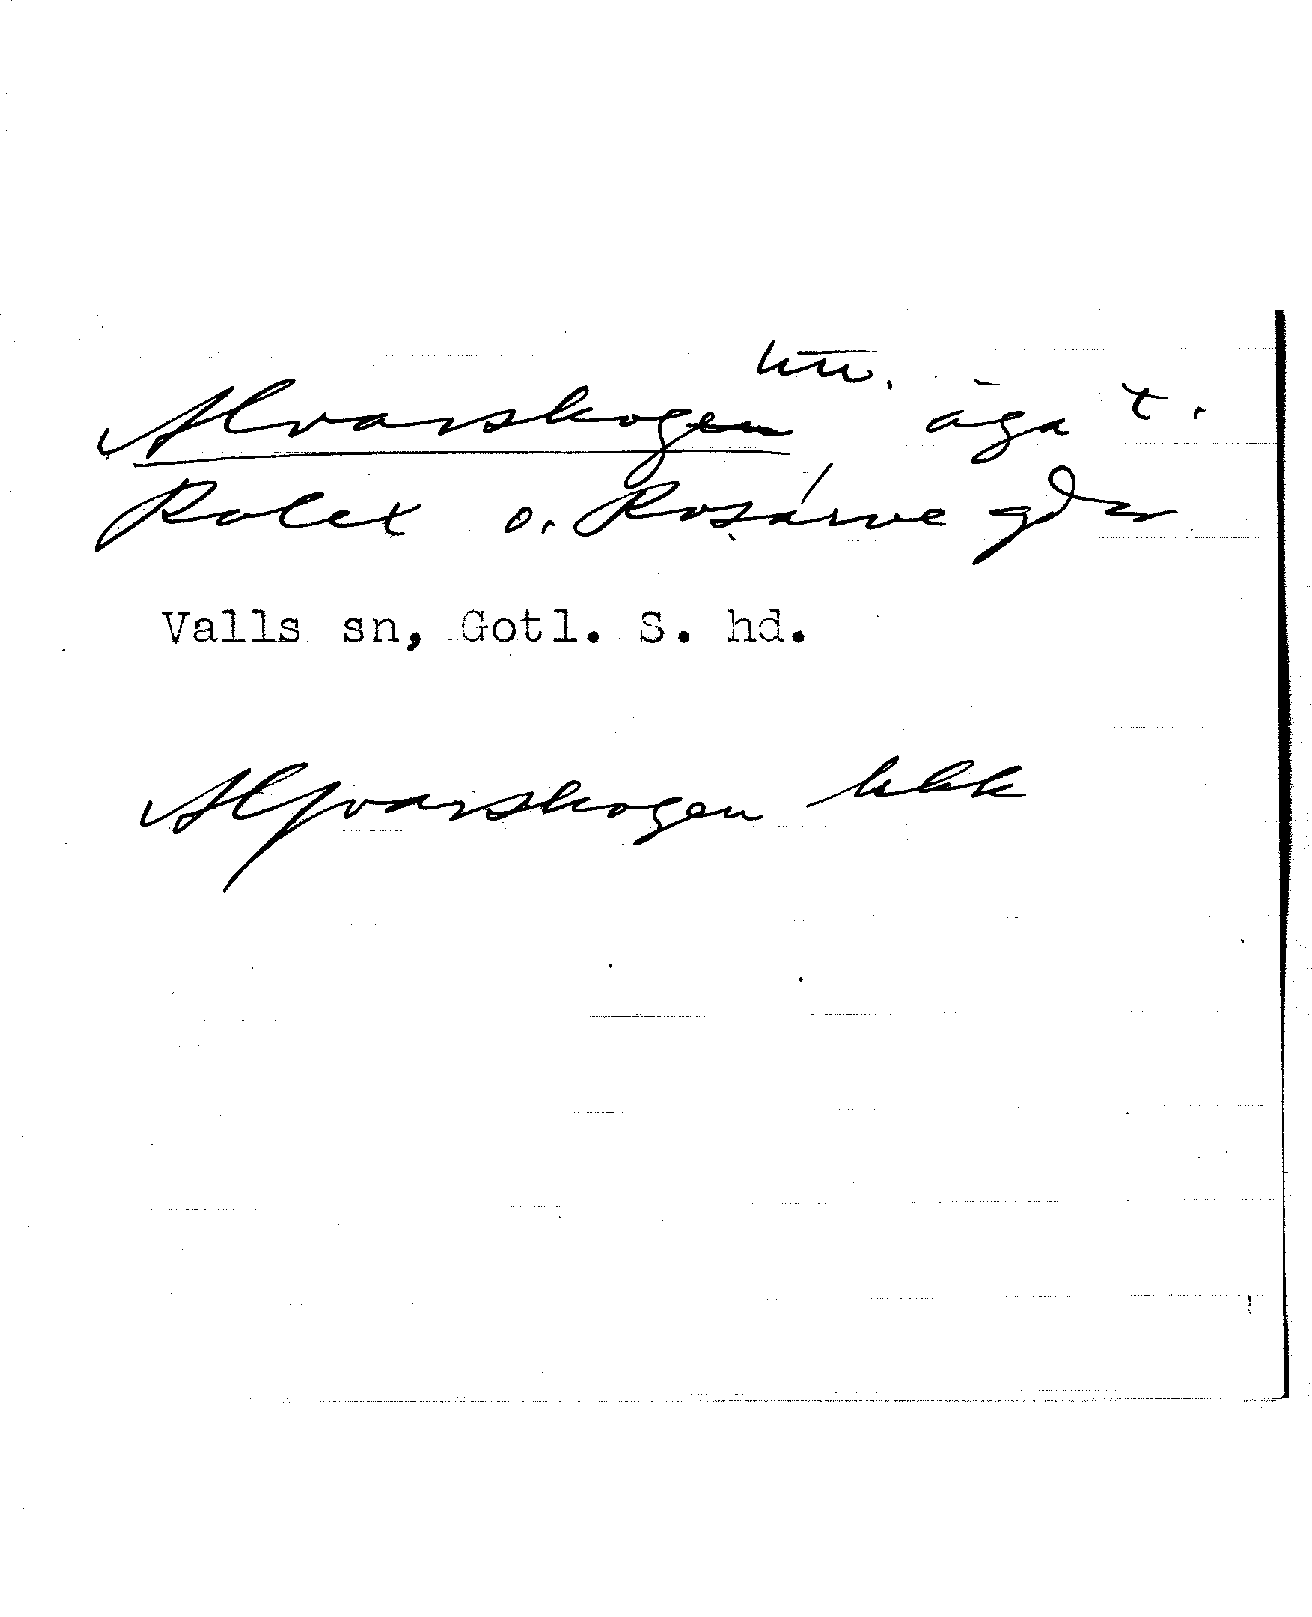 Alvarskogen äga t.
Rolex o. Rosarve gdr
Valls sn, Gotl. S. hd.
Alfvarskogen hkk